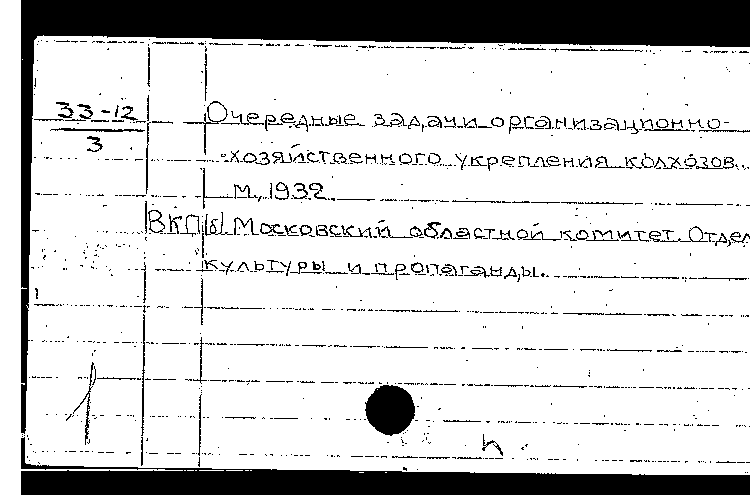 33-12
3
Очередные задачи организационно-
-хозяйственного укрепления колхозов..
М., 1932.
ВКП(б) Московский областной комитет. Отдел
культуры и пропаганды.